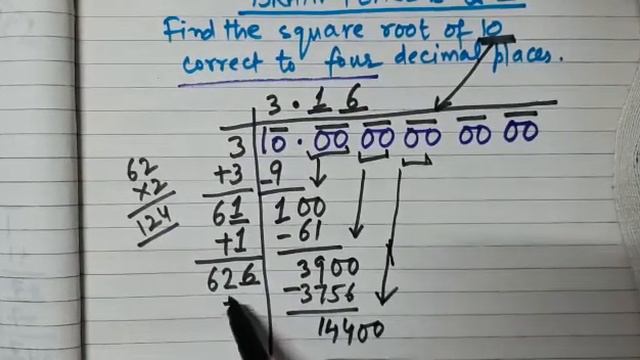 Find the square root of 10
correct to four decimal places.
3.16
3 10.00 00 00 00 00
+3 -9
62
×2
124
61 100
+1 -61
626 3900
-3756
14400